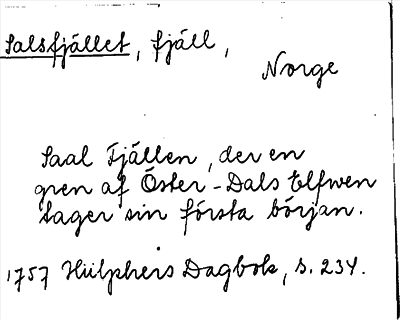 Salsfjället, fjäll,
Norge
Saal Fjällen, der en
gren af Öster-Dals Elfwen
tager sin första början.
1757 Hülphers Dagbok, s. 234.